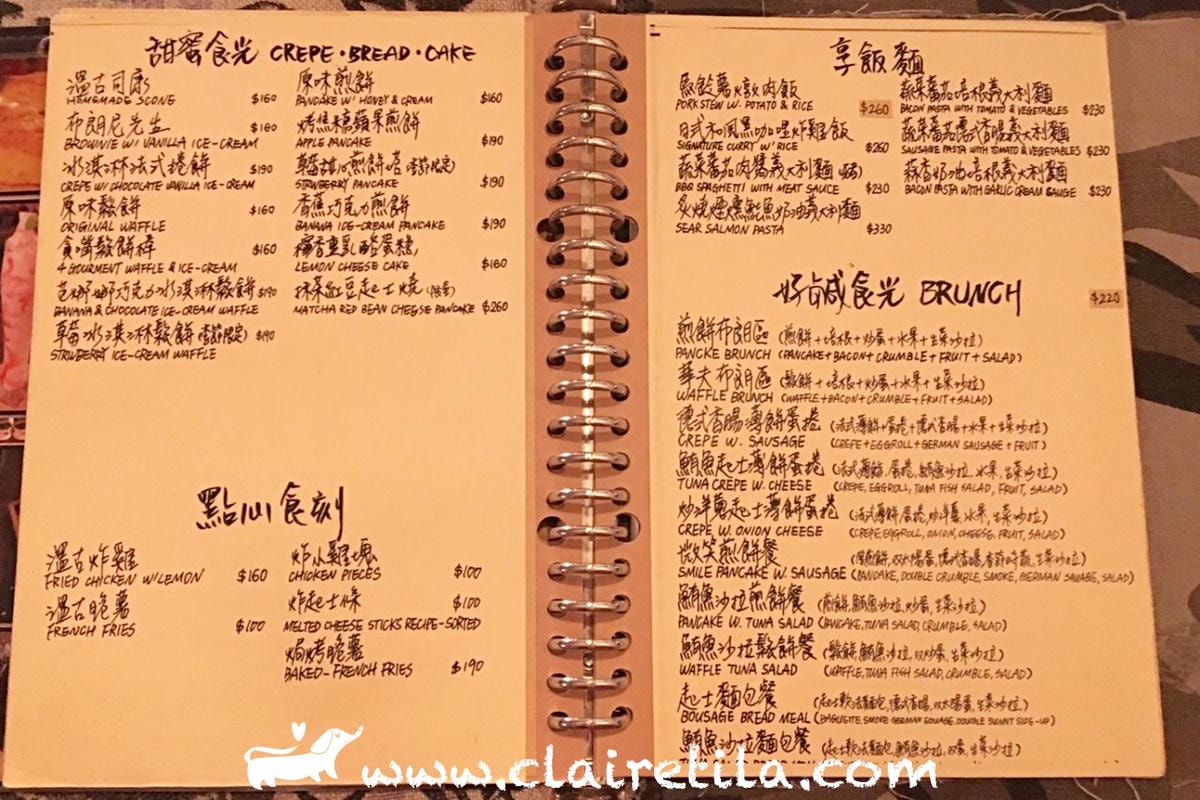 甜蜜食光 CREPE·BREAD·CAKE
溫古司康
HOMEMADE SCONE $160
布朗尼先生 $160
BROWNIE W/ VANILLA ICE-CREAM
冰淇淋法式捲餅 $190
CREPE W/ CHOCOLATE VANILLA ICE-CREAM
原味鬆餅 $160
ORIGINAL WAFFLE
貪嘴鬆餅棒 $160
4 GOURMENT WAFFLE & ICE-CREAM
芭娜娜巧克力冰淇淋鬆餅 $190
BANANA & CHOCOLATE ICE-CREAM WAFFLE
草莓冰淇淋鬆餅 (季節限定) $190
STRWBERRY ICE-CREAM WAFFLE
原味煎餅
PANCAKE W/ HONEY & CREAM $160
烤焦糖蘋果煎餅
APPLE PANCAKE $190
煎餅塔 (季節限定)
STRWBERRY PANCAKE $190
香蕉巧克力煎餅
BANANA ICE-CREAM PANCAKE $190
檸香重乳酪蛋糕
LEMON CHEESE CAKE $160
抹茶紅豆起士燒 (限量)
MATCHA RED BEAN CHEESE PANCAKE $260
點心食刻
溫古炸雞
FRIED CHICKEN W/LEMON $160
溫古脆薯
FRENCH FRIES $100
炸小雞塊
CHICKEN PIECES $100
炸起士條 $100
MELTED CHEESE STICKS RECIPE-SORTED
焗烤脆薯
BAKED-FRENCH FRIES $190
享飯麵
馬鈴薯燉肉飯
PORK STEW W. POTATO & RICE $260
日式和風黑咖哩炸雞飯
SIGNATURE CURRY W/ RICE $260
蔬菜蕃茄肉醬義大利麵
BBQ SPAGHETTI WITH MEAT SAUCE $230
炙燒煙燻鮭魚奶油義大利麵
SEAR SALMON PASTA $330
蔬菜蕃茄培根義大利麵
BACON PASTA WITH TOMATO & VEGETABLES $230
蔬菜蕃茄德式香腸義大利麵
SAUSAGE PASTA WITH TOMATO & VEGETABLES $230
蒜香奶油培根義大利麵
BACON PASTA WITH GARLIC CREAM SAUGE $230
好鹹食光 BRUNCH $220
煎餅布朗區 (煎餅+培根+炒蛋+水果+生菜沙拉)
PANCKE BRUNCH (PANCAKE+BACON+CRUMBLE+FRUIT+SALAD)
華夫布朗區 (鬆餅+培根+炒蛋+水果+生菜沙拉)
WAFFLE BRUNCH (WAFFLE+BACON+CRUMBLE+FRUIT+SALAD)
德式香腸薄餅蛋捲 (法式薄餅+蛋捲+德式香腸+水果+生菜沙拉)
CREPE W. SAUSAGE (CREPE+EGGROLL+GERMAN SAUSAGE+FRUIT)
鮪魚起士薄餅蛋捲 (法式薄餅, 蛋捲, 鮪魚沙拉, 水果, 生菜沙拉)
TUNA CREPE W. CHEESE (CREPE, EGGROLL, TUNA FISH SALAD, FRUIT, SALAD)
炒洋蔥起士薄餅蛋捲 (法式薄餅, 蛋捲, 炒洋蔥, 水果, 生菜沙拉)
CREPE W. ONION CHEESE (CREPE, EGGROLL, ONION, CHEESE, FRUIT, SALAD)
微笑煎餅餐 (厚煎餅, 双太陽蛋, 德式香腸, 季節時蔬, 生菜沙拉)
SMILE PANCAKE W. SAUSAGE (PANCAKE, DOUBLE CRUMBLE, SMOKE, GERMAN SAUAGE, SALAD)
鮪魚沙拉煎餅餐 (煎餅, 鮪魚沙拉, 炒蛋, 生菜沙拉)
PANCAKE W. TUNA SALAD (PANCAKE, TUNA SALAD, CRUMBLE, SALAD)
鮪魚沙拉鬆餅餐 (鬆餅, 鮪魚沙拉, 双炒蛋, 生菜沙拉)
WAFFLE TUNA SALAD (WAFFLE, TUNA FISH SALAD, CRUMBLE, SALAD)
起士麵包餐 (起士軟法麵包, 德式香腸, 双太陽蛋, 生菜沙拉)
BOUSAGE BREAD MEAL (BAGUETTE, SMOKE GERMAN SOUAGE, DOUBLE SUNNY SIDE-UP)
鮪魚沙拉麵包餐 (起士軟法麵包, 鮪魚沙拉, 双蛋, 生菜沙拉)
www.clairetila.com